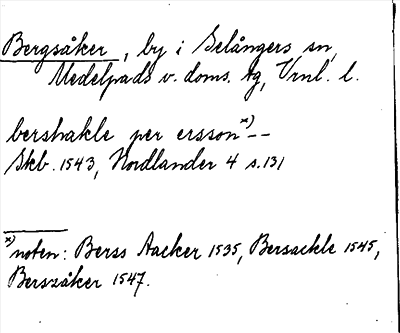 Bergsåker, by i Selångers sn,
Medelpads v. doms. tg, Vrnl. l.
bershakle per ersson x) --
Skb. 1543, Nordlander 4 s. 131
x) noten: Berss Aacker 1535, Bersackle 1545,
Berszåker 1547.